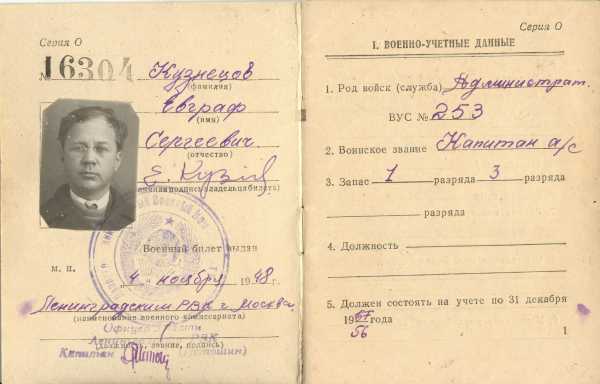 Серия О
№ 16304
Кузнецов
(фамилия)
Евграф
(имя)
Сергеевич
(отчество)
Е. Кузн
(личная подпись владельца билета)
Военный билет выдан
М. П. „4 ноября 1948 г.
Ленинградским РВК г. Москва
(наименование военного комиссариата)
Капитан
(должность, звание, подпись)
Серия О
I. ВОЕННО-УЧЕТНЫЕ ДАННЫЕ
1. Род войск (служба) Администрат.
ВУС № 253
2. Воинское звание Капитан а/с
3. Запас 1 разряда 3 разряда
разряда
4. Должность
5. Должен состоять на учете по 31 декабря
1957 года
56
1